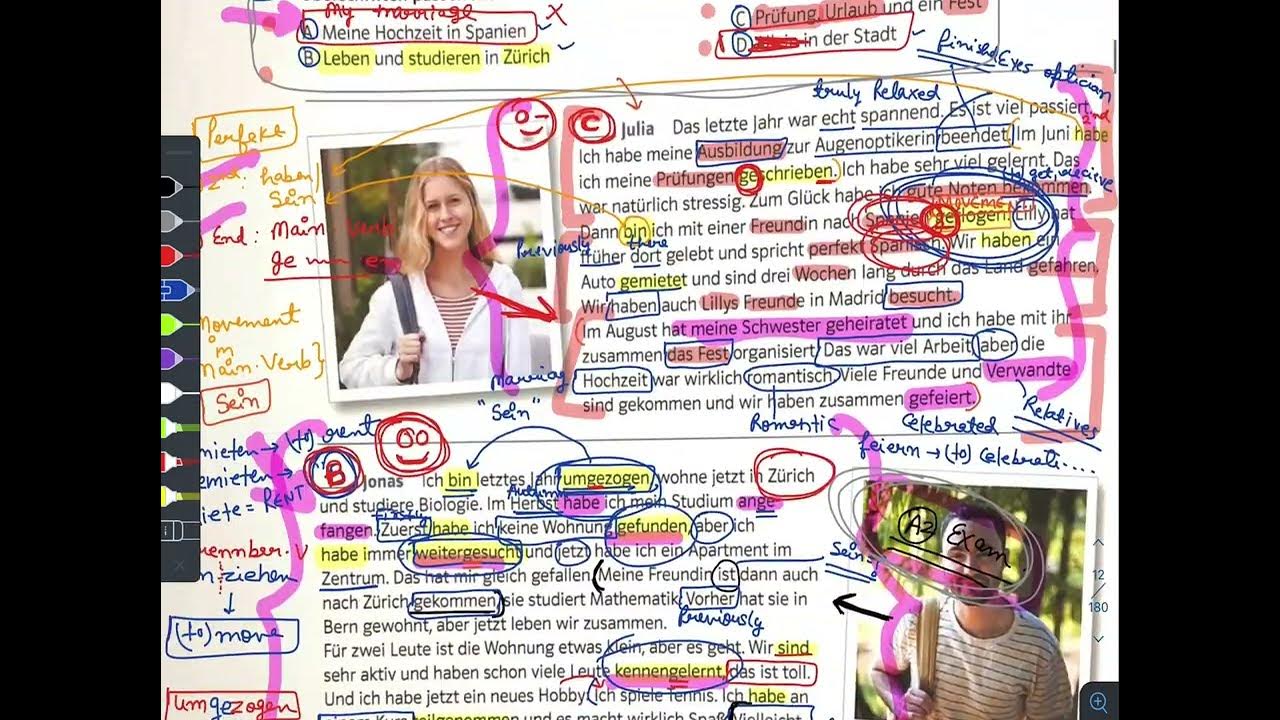 My marriage X
A Meine Hochzeit in Spanien
B Leben und studieren in Zürich
C Prüfung, Urlaub und ein Fest
D in der Stadt
finished
Eyes optician
truly Relaxed
Perfekt
2nd: haben
Sein
End: Main Verb
Ge m en
Movement
in
Main Verb}
Sein
C Julia Das letzte Jahr war echt spannend. Es ist viel passiert.
Ich habe meine Ausbildung zur Augenoptikerin beendet. Im Juni habe
ich meine Prüfungen geschrieben. Ich habe sehr viel gelernt. Das
war natürlich stressig. Zum Glück habe ich gute Noten bekommen.
Dann bin ich mit einer Freundin nach Spanien geflogen. Lilly hat
früher dort gelebt und spricht perfekt Spanisch. Wir haben ein
Auto gemietet und sind drei Wochen lang durch das Land gefahren.
Wir haben auch Lillys Freunde in Madrid besucht.
Im August hat meine Schwester geheiratet und ich habe mit ihr
zusammen das Fest organisiert. Das war viel Arbeit, aber die
Hochzeit war wirklich romantisch. Viele Freunde und Verwandte
sind gekommen und wir haben zusammen gefeiert.
2nd
MOVEMENT
Previously
there
Marriag
"Sein"
Romantic
Celebrated
Relatives
feiern → (to) Celebrati....
mieten → (to) rent
emieten →
iete = RENT
Trennber. V
n ziehen
(to) move
umgezogen
B Jonas Ich bin letztes Jahr umgezogen, wohne jetzt in Zürich
und studiere Biologie. Im Herbst habe ich mein Studium ange
fangen. Zuerst habe ich keine Wohnung gefunden, aber ich
habe immer weitergesucht und jetzt habe ich ein Apartment im
Zentrum. Das hat mir gleich gefallen. Meine Freundin ist dann auch
nach Zürich gekommen, sie studiert Mathematik. Vorher hat sie in
Bern gewohnt, aber jetzt leben wir zusammen.
Für zwei Leute ist die Wohnung etwas klein, aber es geht. Wir sind
sehr aktiv und haben schon viele Leute kennengelernt, das ist toll.
Und ich habe jetzt ein neues Hobby: Ich spiele Tennis. Ich habe an
einem Kurs teilgenommen und es macht wirklich Spaß. Vielleicht
Autumn
Previously
Sein
A2 Exam
12
180